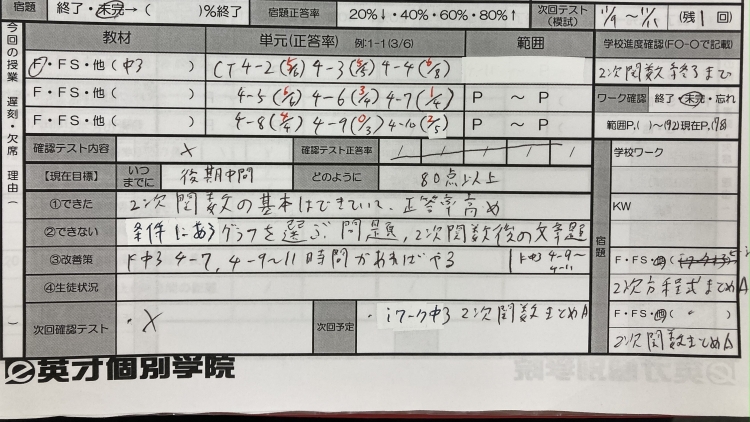 宿題 終了・未完→( )%終了 宿題正答率 20%↓・40%・60%・80%↑ 次回テスト(模試) 11/9 ~ 11/11 (残1回)
今回の授業 遅刻・欠席 理由( )
教材 単元(正答率) 例:1-1(3/6) 範囲 学校進度確認(FO-Oで記載)
F・FS・他(中3 ) CT 4-2(5/6) 4-3(5/5) 4-4(6/8) 2次関数終了まで
F・FS・他( ) 4-5(6/6) 4-6(3/4) 4-7(1/4) P ~ P ワーク確認 終了・未完・忘れ
F・FS・他( ) 4-8(4/4) 4-9(0/3) 4-10(2/5) P ~ P 範囲P.( )~(92)現在P.(78)
確認テスト内容 × 確認テスト正答率 / / / / /
学校ワーク
【現在目標】 いつまでに 後期中間 どのように 80点以上
①できた 2次関数の基本はできていて、正答率高め
KW
②できない 条件にあうグラフを選ぶ問題, 2次関数後の文章題
宿題
③改善策 F中3 4-7, 4-9~11 時間があればやる F中3 4-9~4-11
F・FS・他(
④生徒状況
2次方程式まとめA
次回確認テスト ・× 次回予定 ・iワーク中3 2次関数まとめA
F・FS・他( 〃 )
2次関数まとめA
英才個別学院